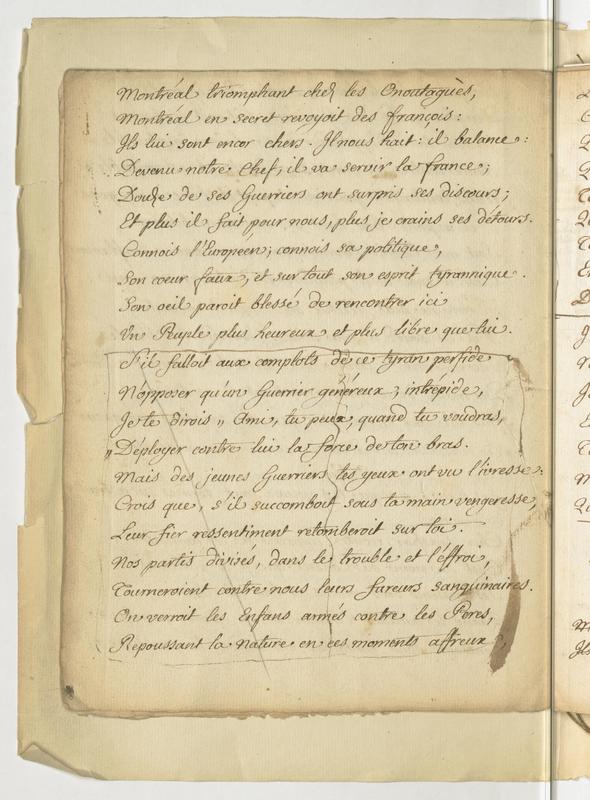 Montréal triomphant chez les Onontaguès,
Montréal en secret revoyoit des françois :
Ils lui sont encor chers. Il nous hait : il balance :
Devenu notre Chef, il va servir la france ;
Douze de ses Guerriers ont surpris ses discours ;
Et plus il fait pour nous, plus je crains ses détours.
Connois l'Européen ; connois sa politique,
Son coeur faux, et surtout son esprit tyrannique.
Son oeil paroit blessé de rencontrer ici
Un Peuple plus heureux et plus libre que lui.
S'il falloit aux complots de ce tyran perfide
N'opposer qu'un Guerrier généreux, intrépide,
Je te dirois „ Ami, tu peux, quand tu voudras,
„ Déployer contre lui la force de ton bras.
Mais des jeunes Guerriers tes yeux ont vu l'ivresse :
Crois que, s'il succomboit sous ta main vengeresse,
Leur fier ressentiment retomberoit sur toi.
Nos partis divisés, dans le trouble et l'éffroi,
Tourneroient contre nous leurs fureurs sanguinaires.
On verroit les Enfans armés contre les Peres,
Repoussant la Nature en ces moments affreux,